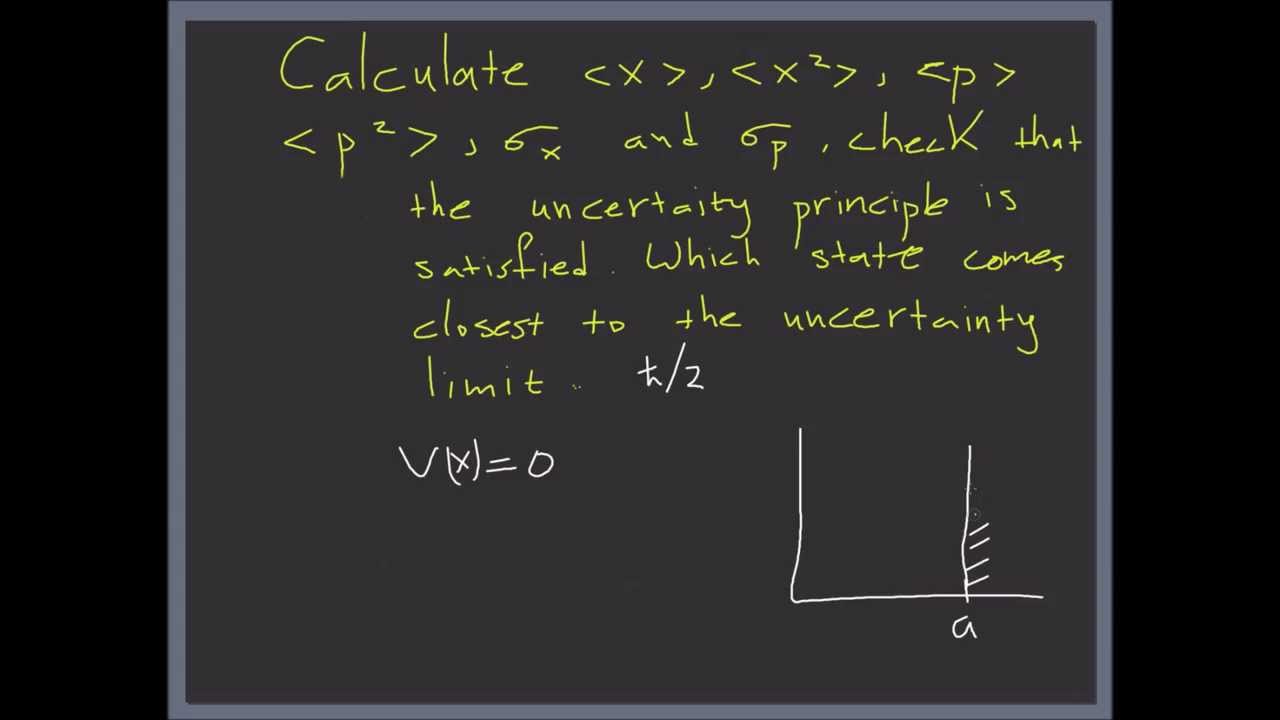 Calculate <x>, <x²>, <p>
<p²>, σₓ and σₚ, check that
the uncertaity principle is
satisfied. Which state comes
closest to the uncertainty
limit. ħ/2
V(x)=0
a